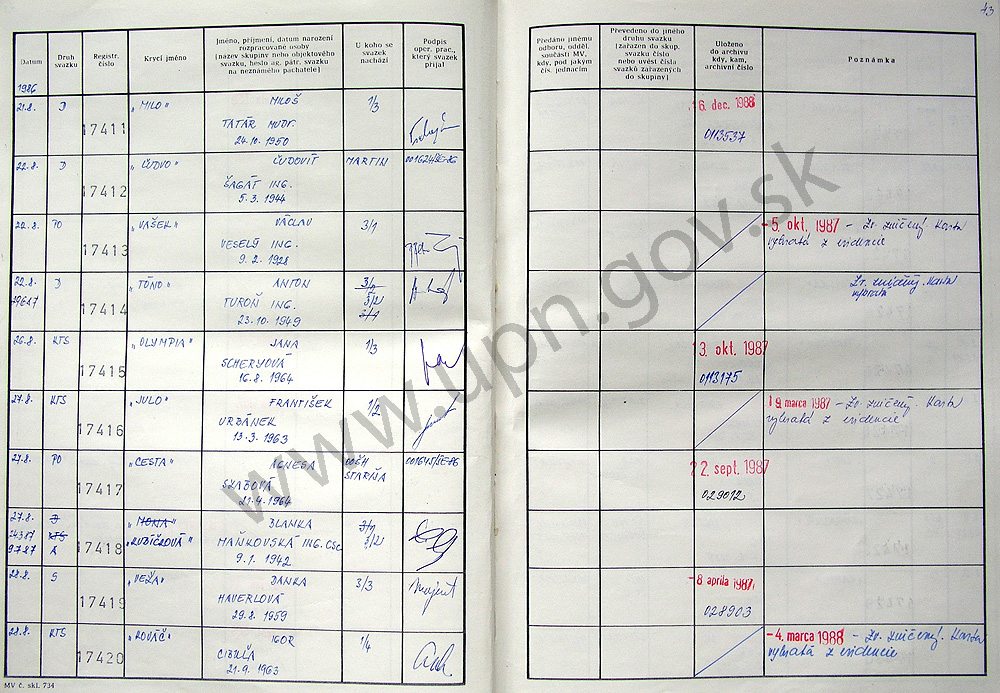 43
Datum
Druh svazku
Registr. číslo
Krycí jméno
Jméno, příjmení, datum narození
rozpracované osoby
(název skupiny nebo objektového
svazku, heslo ag. pátr. svazku
na neznámého pachatele)
U koho se
svazek
nachází
Podpis
oper. prac.,
který svazek
přijal
Předáno jinému
odboru, odděl.
součásti MV,
kdy, pod jakým
čís. jednacím
Převedeno do jiného
druhu svazku
(zařazen do skup.
svazku číslo
nebo uvést čísla
svazků zařazených
do skupiny)
Uloženo
do archivu
kdy, kam,
archivní číslo
Poznámka
1986
21.8. D 17411 "MILO" MILOŠ 1/3 16. dec. 1988
TATÁR MUDr. 0113537
24.10.1950
22.8. D 17412 "ĽUDVO" ĽUDOVÍT MARTIN
ŠAGÁT ING.
5.3.1944
22.8. PO 17413 "VAŠEK" VÁCLAV 3/1 -5. okt. 1987 - Zv. zničený. Karta
VESELÝ ING. vybratá z evidencie
9.2.1928
22.8. D 17414 "TÓNO" ANTON 3/2 Zv. zničený. Karta
TUROŇ ING. vybratá
23.10.1949
26.8. KTS 17415 "OLYMPIA" JANA 1/3 13. okt. 1987
SCHERYOVÁ 0113175
16.8.1964
27.8. KTS 17416 "JULO" FRANTIŠEK 1/2 19. marca 1987 - Zv. zničený. Karta
URBÁNEK vybratá z evidencie
13.3.1963
27.8. PO 17417 "CESTA" AGNESA OOČM 22. sept. 1987
SZABOVÁ STARIŇA 029012
21.4.1964
27.8. D 17418 "MONA" BLANKA 3/1
KTS "KUBIČKOVÁ" MAŇKOVSKÁ ING. CSc 3/2
9.7.87 A 9.1.1942
28.8. S 17419 "VEŽA" DANKA 3/3 -8. apríla 1987
HAVERLOVÁ 028903
29.8.1959
28.8. KTS 17420 "KOVÁČ" IGOR 1/4 -4. marca 1988 - Zv. zničený. Karta
CIBUĽA vybratá z evidencie
21.9.1963
MV č. skl. 734
www.upn.gov.sk